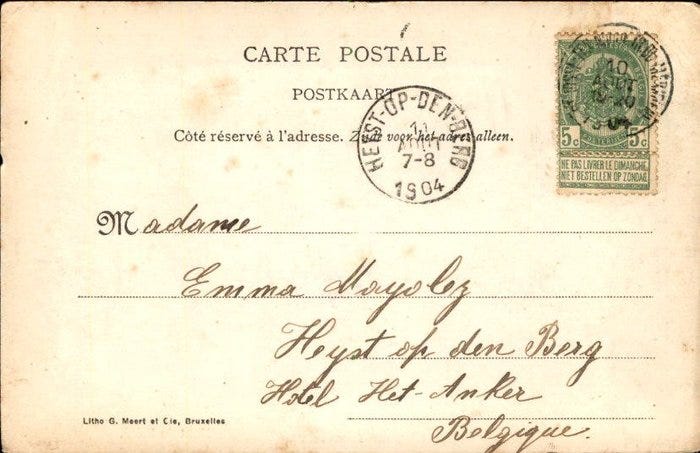 CARTE POSTALE
POSTKAART
Côté réservé à l'adresse. Zijde voor het adres alleen.
HEYST-OP-DEN-BERG
11
AOUT
7-8
1904
10
AOUT
1904
5c 5c
NE PAS LIVRER LE DIMANCHE
NIET BESTELLEN OP ZONDAG
Madame
Emma Mayolez
Heyst op den Berg
Hotel Het-Anker
Belgique.
Litho G. Meert et Cie, Bruxelles